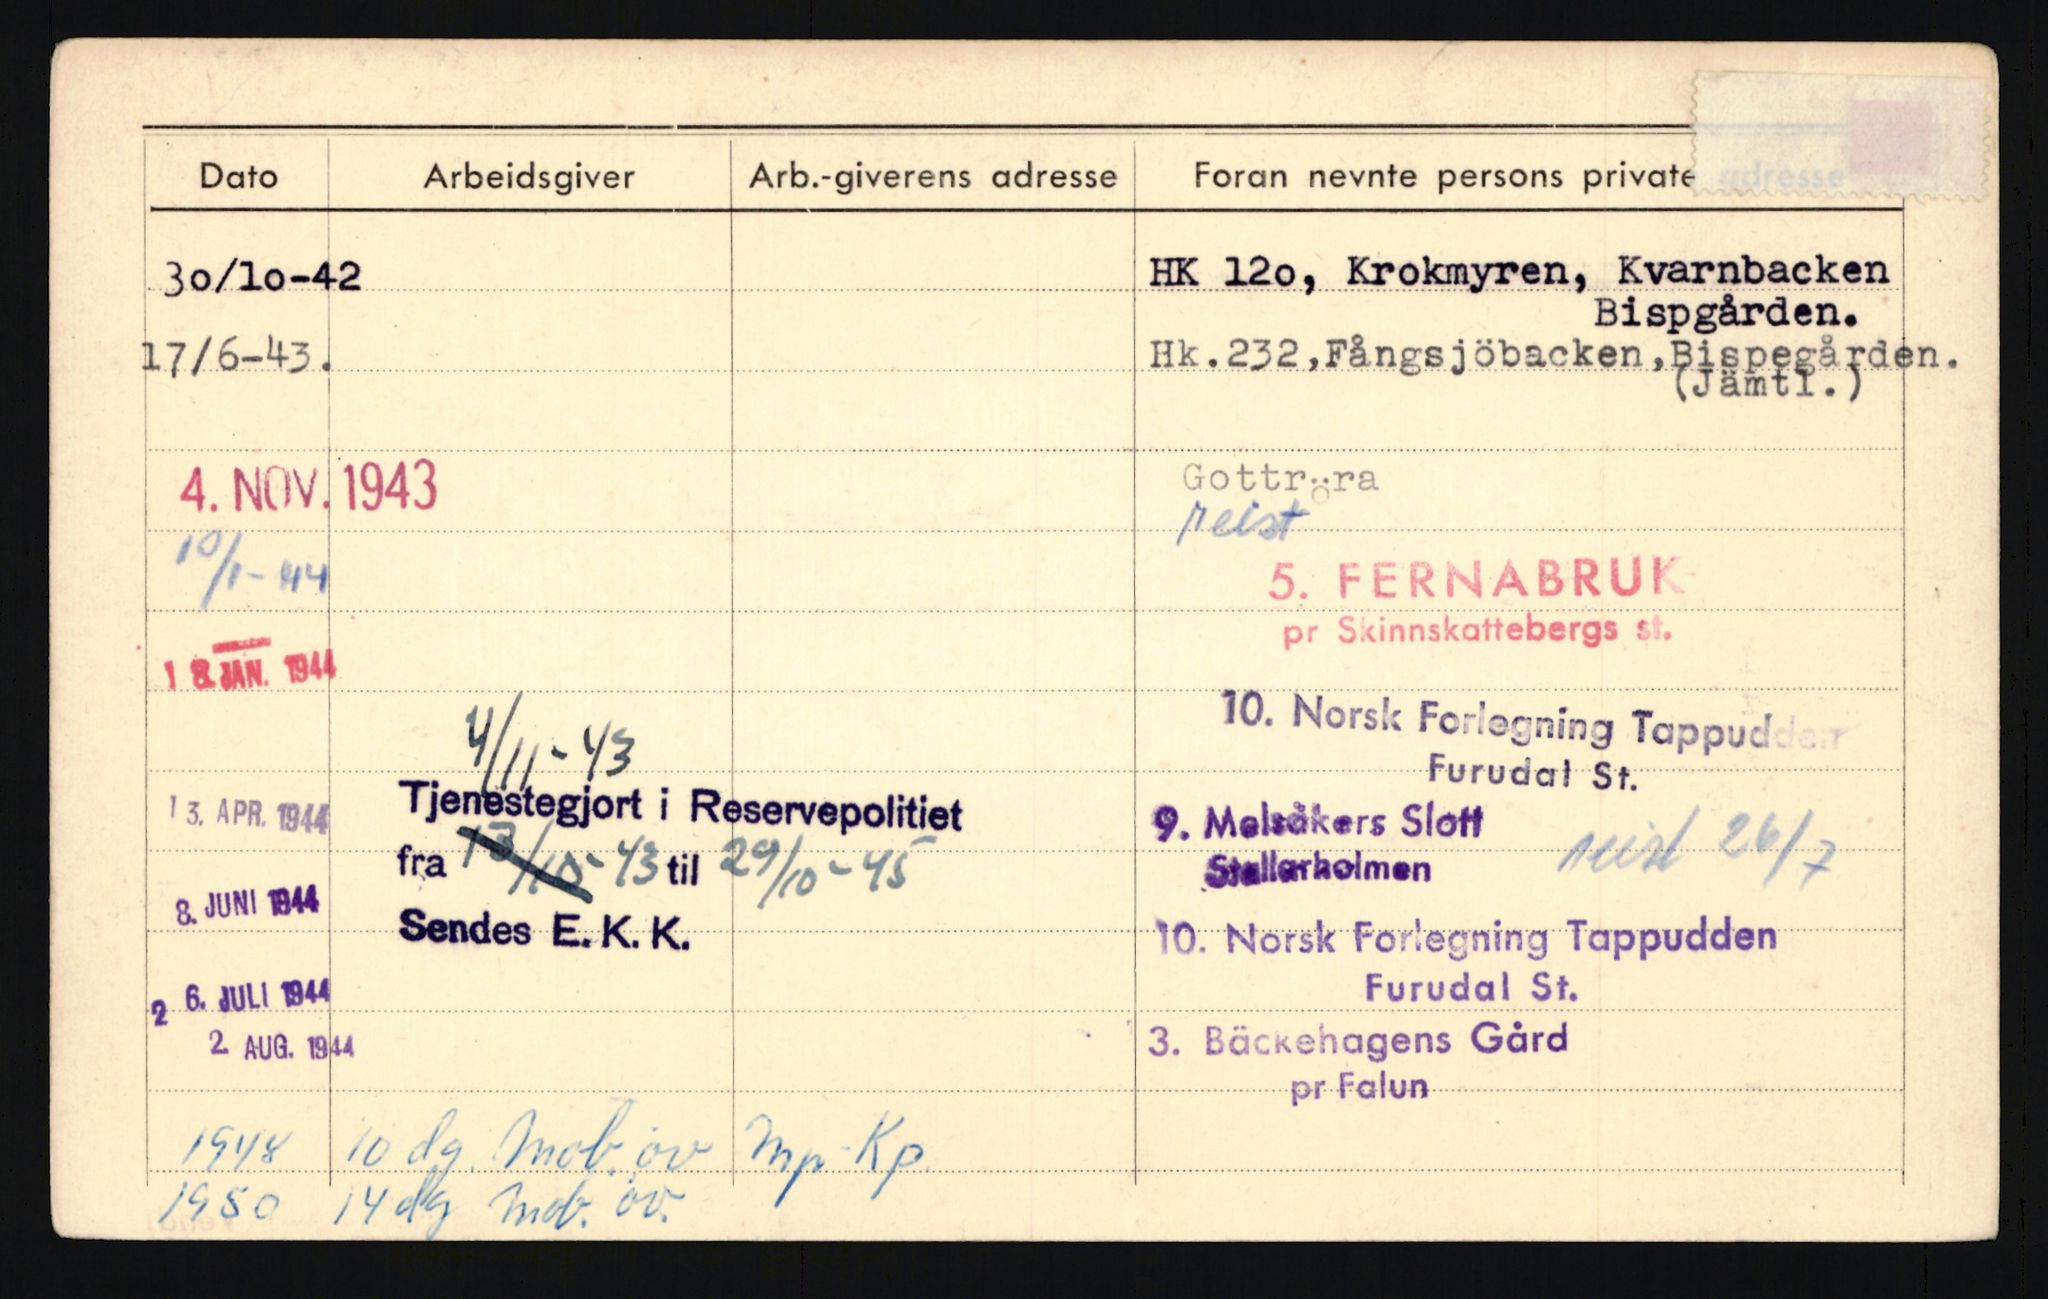 Dato Arbeidsgiver Arb.-giverens adresse Foran nevnte persons private adresse
3o/1o-42 HK 12o, Krokmyren, Kvarnbacken
Bispgården.
17/6-43. Hk.232,Fångsjöbacken,Bispegården.
(Jämtl.)
4. NOV. 1943 Gottröra
reist
10/1-44 5. FERNABRUK
pr Skinnskattebergs st.
1 8. JAN. 1944
10. Norsk Forlegning Tappudden
Furudal St.
4/11-43
1 3. APR. 1944 Tjenestegjort i Reservepolitiet 9. Melsåkers Slott
fra 13/10-43 til 29/10-45 Stallarholmen reist 26/7
8. JUNI 1944 Sendes E. K. K. 10. Norsk Forlegning Tappudden
Furudal St.
2 6. JULI 1944
2. AUG. 1944 3. Bäckehagens Gård
pr Falun
1948 10 dg. Mob. öv Mp-Kp.
1950 14 dg Mob. öv.